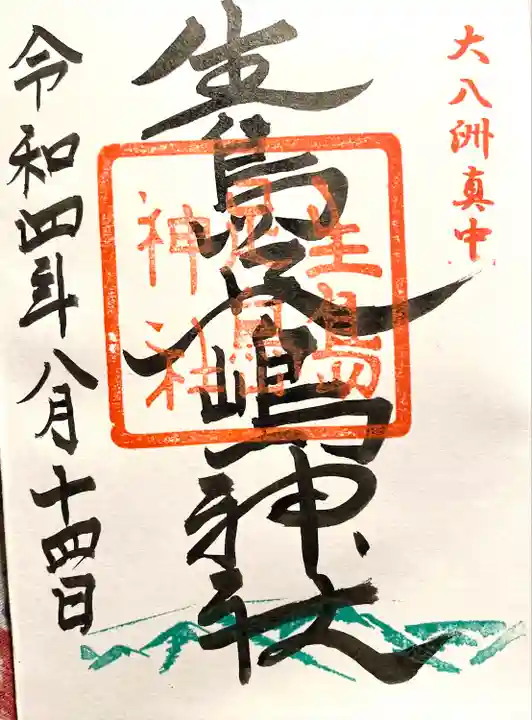 大八洲真中
生島足嶋神社
生島
足島
神社
令和四年八月十四日